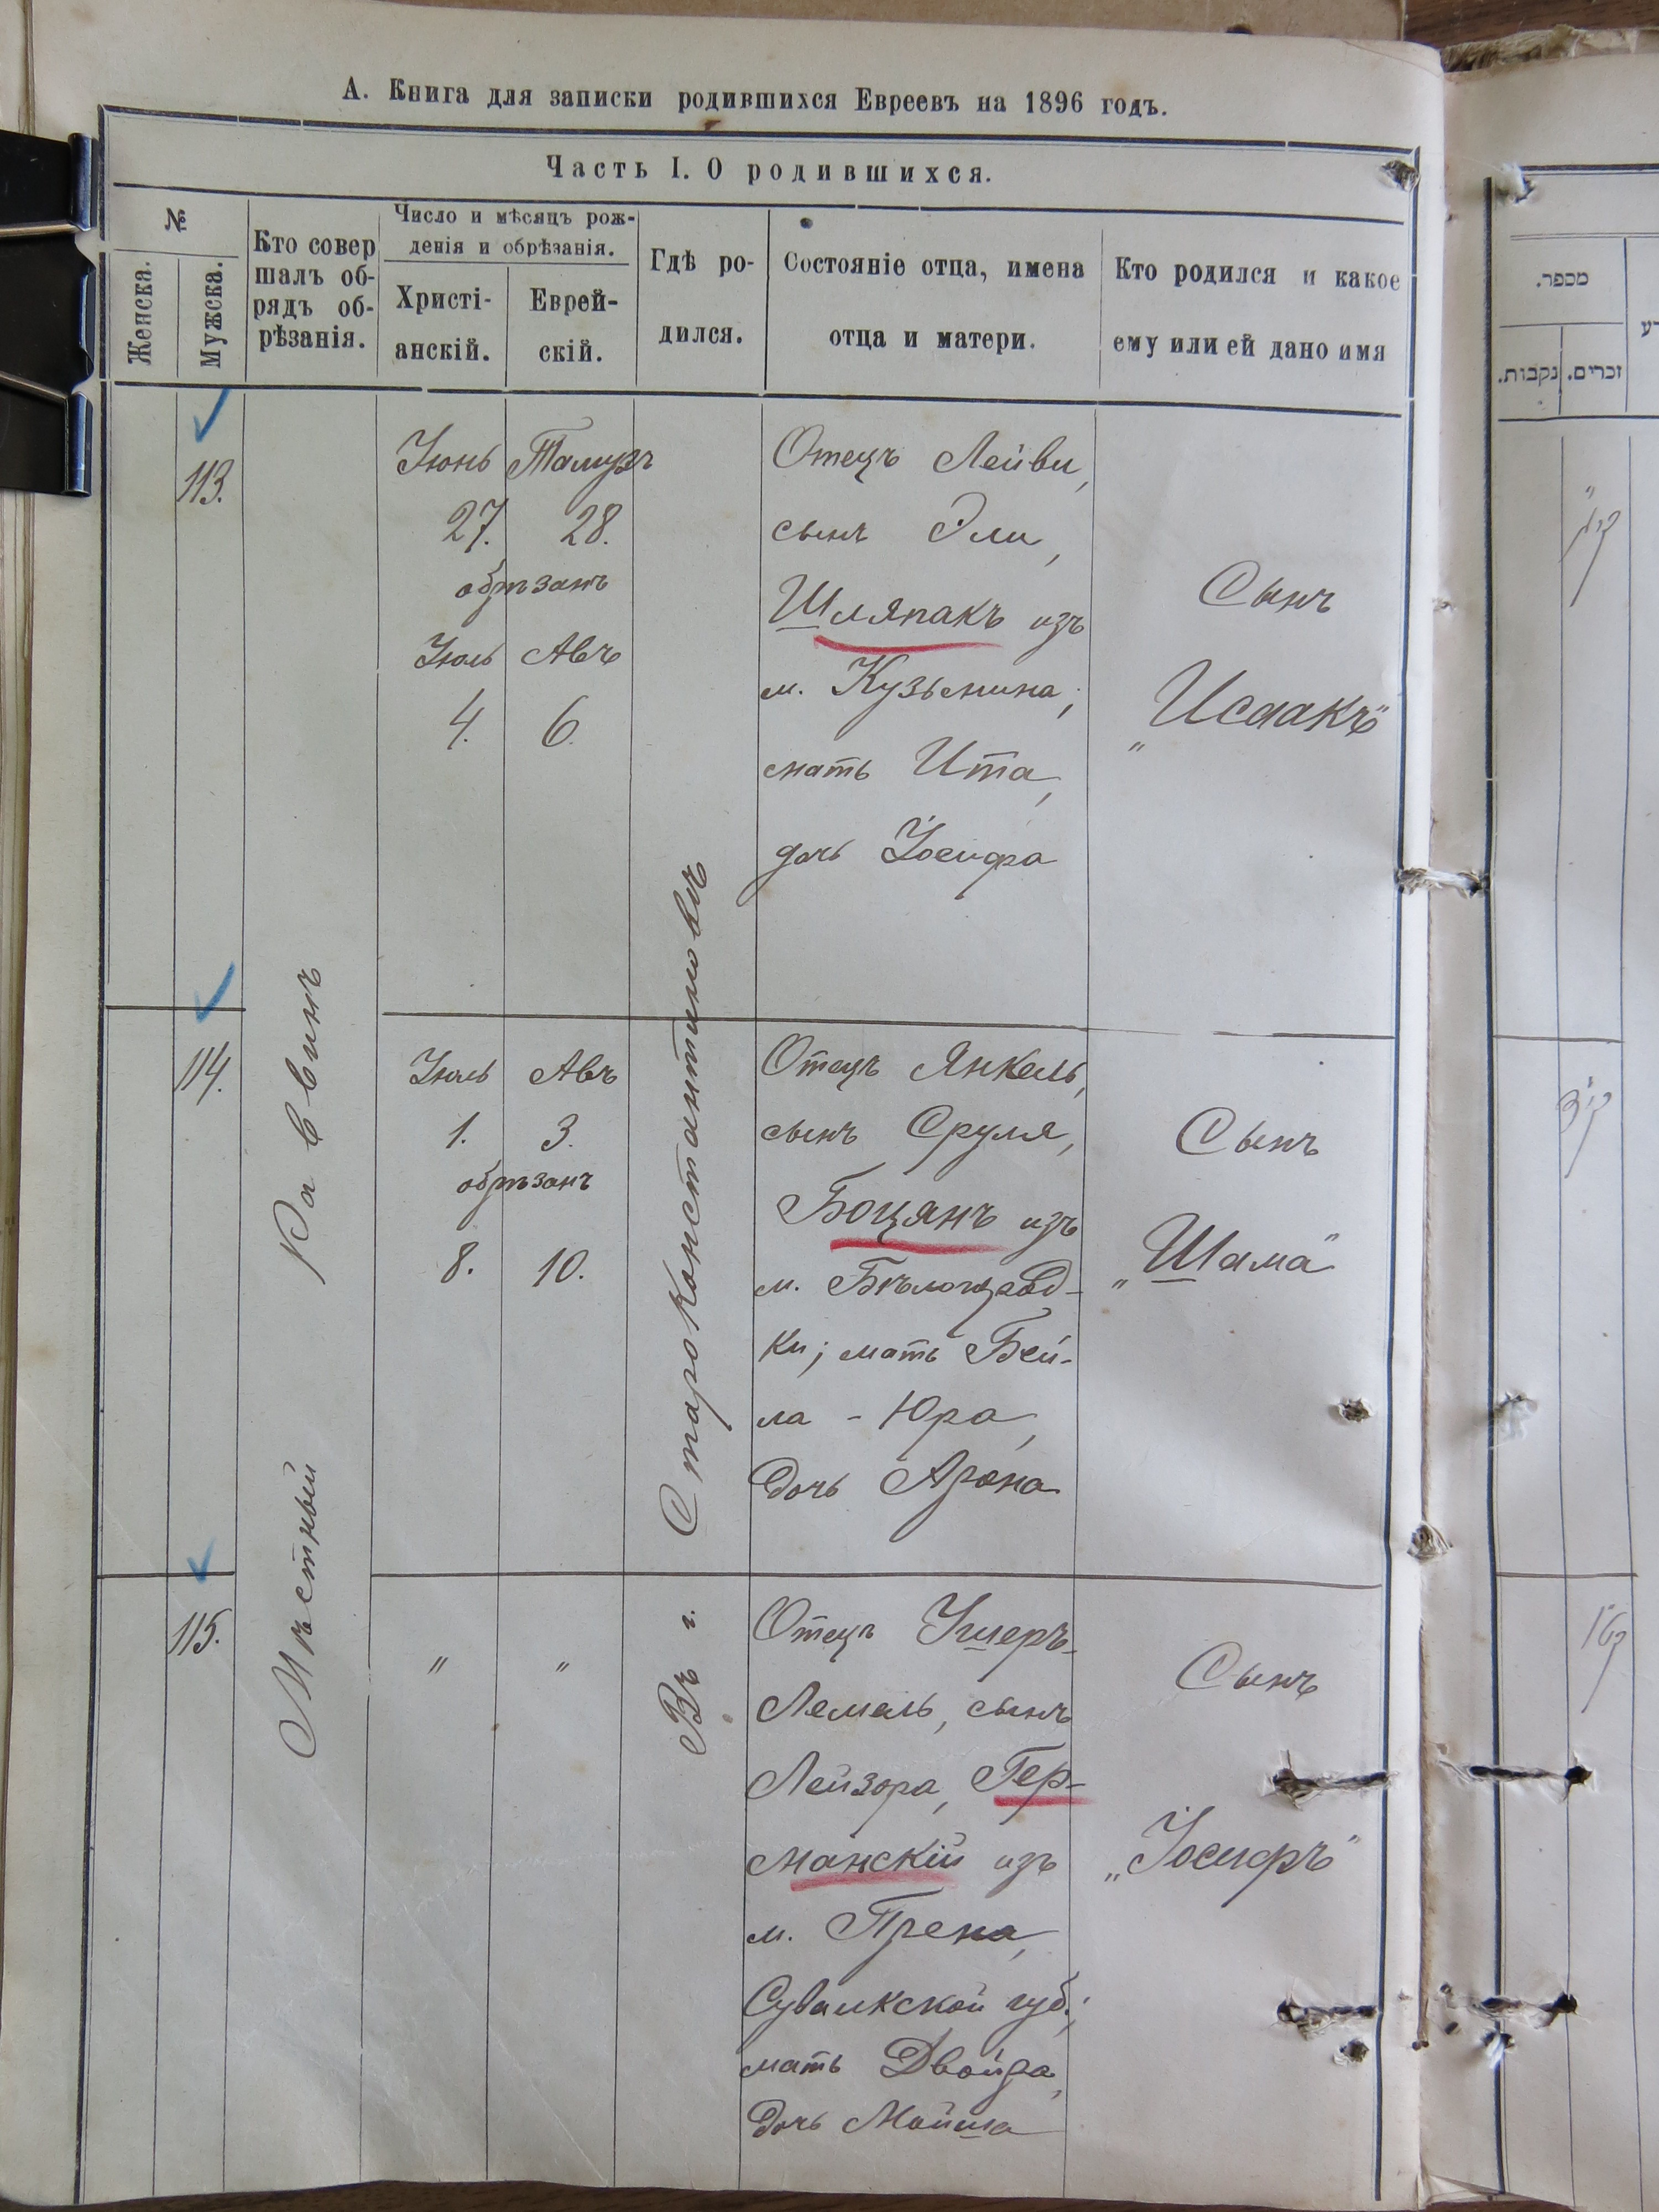 А. Книга для записки родившихся Евреевъ на 1896 годъ.
Часть I. О родившихся.
№
Женска.
Мужска.
Кто совер
шалъ об-
рядъ об-
рѣзанія.
Число и мѣсяцъ рож-
денія и обрѣзанія.
Христі-
анскій.
Еврей-
скій.
Гдѣ ро-
дился.
Состояніе отца, имена
отца и матери.
Кто родился и какое
ему или ей дано имя
Мѣстный Раввинъ
Въ г. Староконстантиновѣ
113.
Іюнь Тамузъ
27. 28.
обрѣзанъ
Іюль Авъ
4. 6.
Отецъ Лейви,
сынъ Эли,
Шляпакъ изъ
м. Кузьмина;
мать Ита,
дочь Іосифа
Сынъ
„Исаакъ"
114.
Іюль Авъ
1. 3.
обрѣзанъ
8. 10.
Отецъ Янкель,
сынъ Сруля,
Боцянъ изъ
м. Бѣлогород-
ки; мать Бей-
ла - Юра,
дочь Арона
Сынъ
„Шама"
115.
" "
Отецъ Ушеръ-
Лемель, сынъ
Лейзора, Гер-
манскій изъ
м. Прена,
Сувалкской губ.;
мать Двойра,
дочь Мойша
Сынъ
„Іосифъ"
מספר.
זכרים.
נקבות.
קי"ג
קי"ד
קט"ו